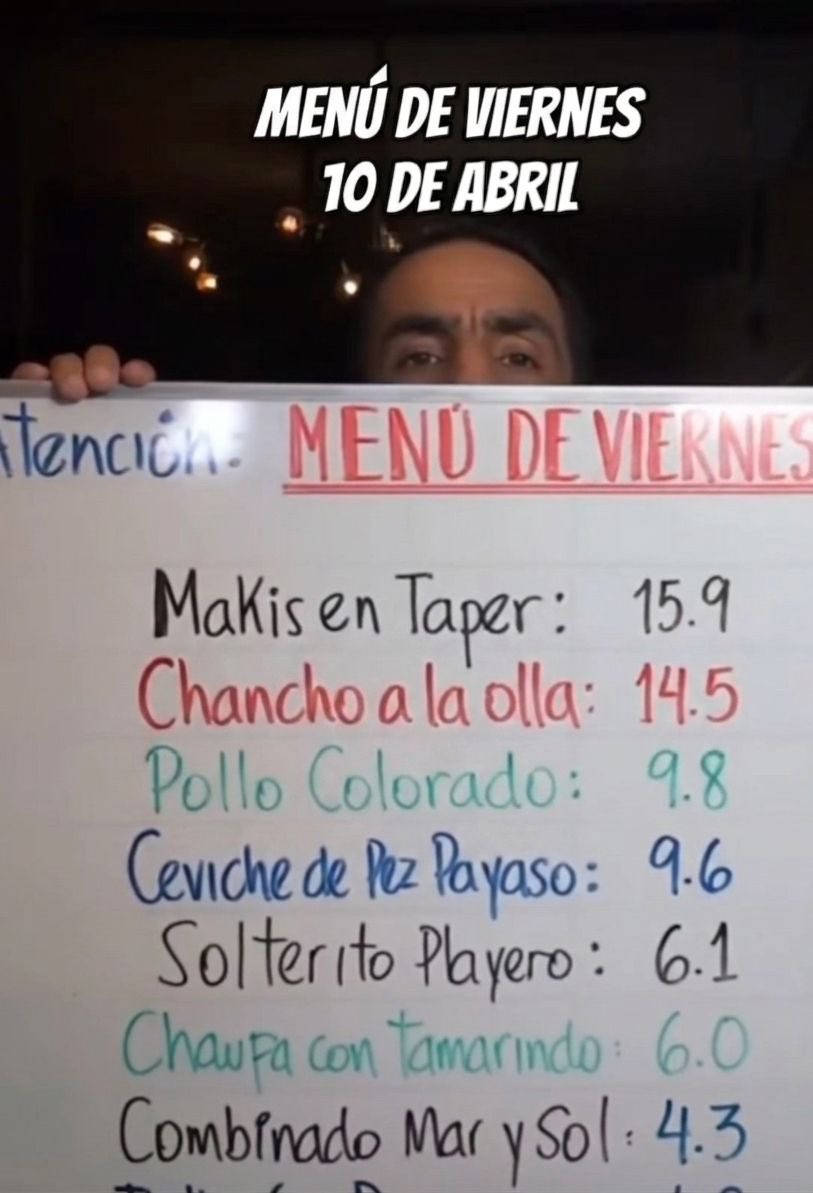 MENÚ DE VIERNES
10 DE ABRIL
Atención: MENÚ DE VIERNES
Makis en Taper: 15.9
Chancho a la olla: 14.5
Pollo Colorado: 9.8
Ceviche de Pez Payaso: 9.6
Solterito Playero: 6.1
Chaufa con Tamarindo: 6.0
Combinado Mar y Sol: 4.3